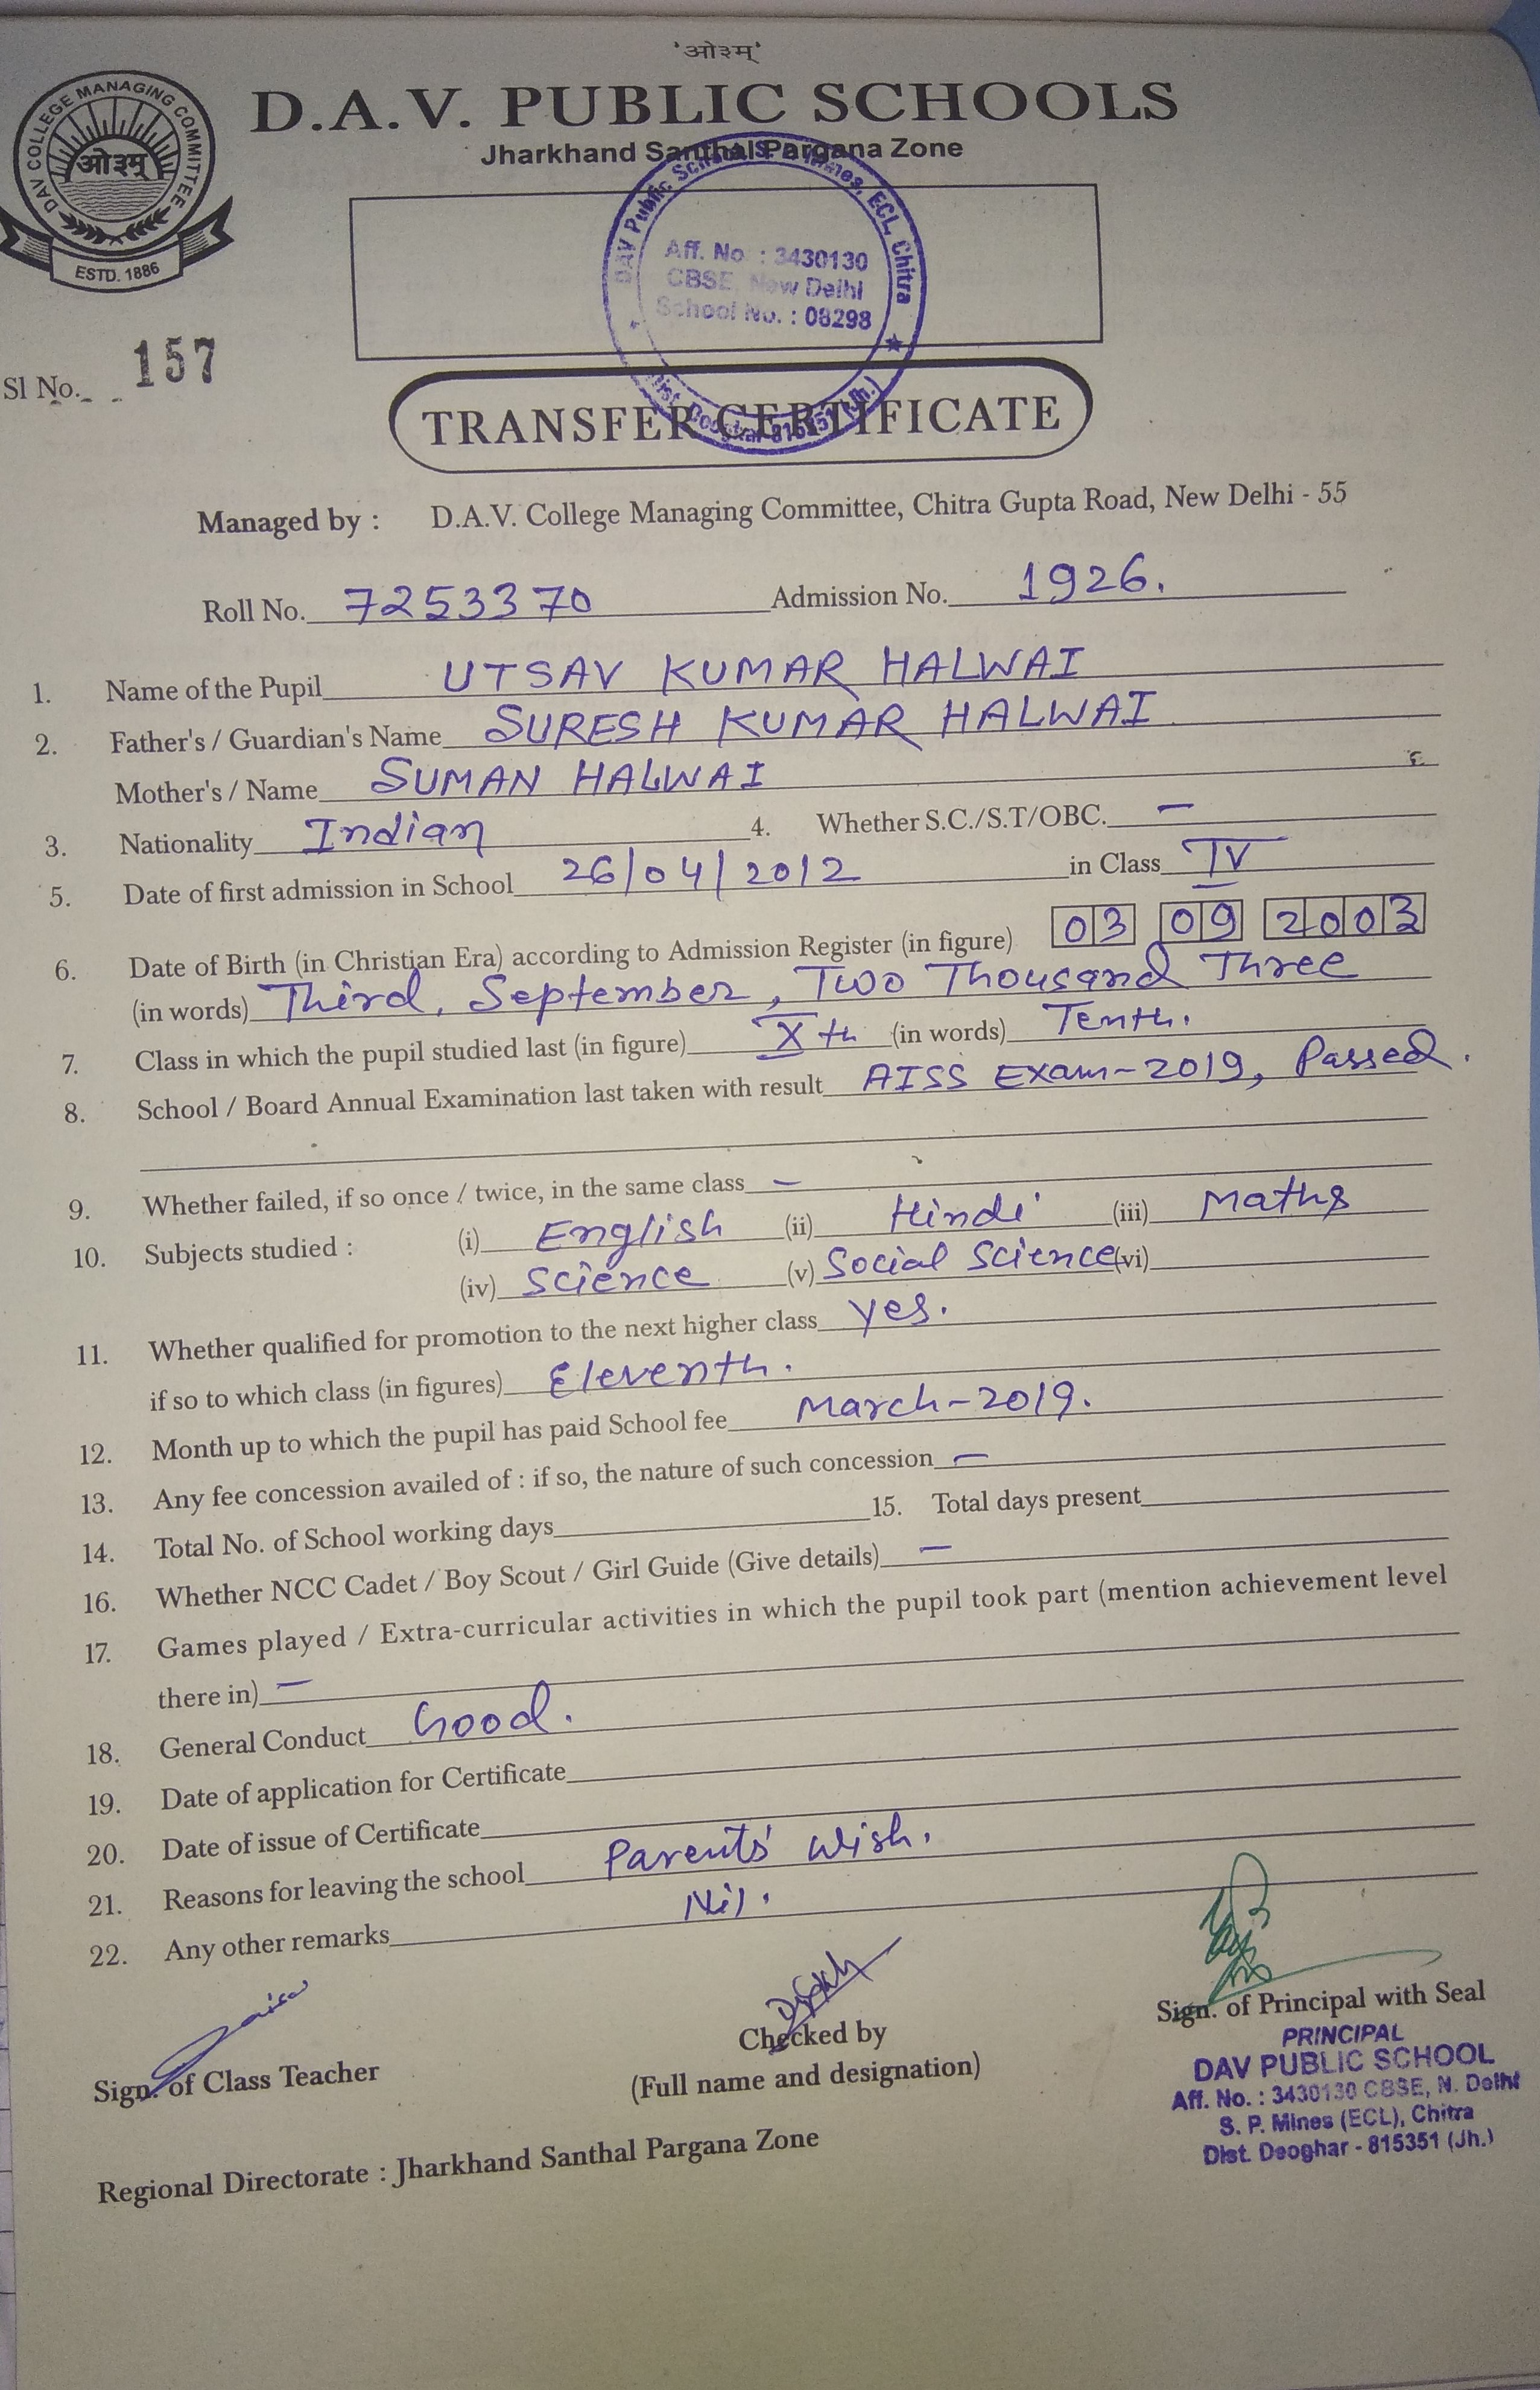 'ओ३म्'
DAV COLLEGE MANAGING COMMITTEE
ओ३म्
ESTD. 1886
D.A.V. PUBLIC SCHOOLS
Jharkhand Santhal Pargana Zone
DAV Public School, S. P. Mines, ECL, Chitra
Aff. No. : 3430130
CBSE, New Delhi
School No. : 08298
Dist. Deoghar 815351 (Jh.)
Sl No. 157
TRANSFER CERTIFICATE
Managed by : D.A.V. College Managing Committee, Chitra Gupta Road, New Delhi - 55
Roll No. 7253370 Admission No. 1926.
1. Name of the Pupil UTSAV KUMAR HALWAI
2. Father's / Guardian's Name SURESH KUMAR HALWAI
Mother's / Name SUMAN HALWAI
3. Nationality Indian 4. Whether S.C./S.T/OBC. —
5. Date of first admission in School 26/04/2012 in Class IV
6. Date of Birth (in Christian Era) according to Admission Register (in figure) 03 09 2003
(in words) Third, September, Two Thousand Three
7. Class in which the pupil studied last (in figure) Xth (in words) Tenth.
8. School / Board Annual Examination last taken with result AISS Exam-2019, Passed.
9. Whether failed, if so once / twice, in the same class —
10. Subjects studied : (i) English (ii) Hindi (iii) Maths
(iv) Science (v) Social Science (vi)
11. Whether qualified for promotion to the next higher class yes.
if so to which class (in figures) Eleventh.
12. Month up to which the pupil has paid School fee March-2019.
13. Any fee concession availed of : if so, the nature of such concession —
14. Total No. of School working days 15. Total days present
16. Whether NCC Cadet / Boy Scout / Girl Guide (Give details) —
17. Games played / Extra-curricular activities in which the pupil took part (mention achievement level
there in) —
18. General Conduct Good.
19. Date of application for Certificate
20. Date of issue of Certificate
21. Reasons for leaving the school Parents' wish.
22. Any other remarks Nil.
Sign. of Class Teacher
Checked by
(Full name and designation)
Sign. of Principal with Seal
PRINCIPAL
DAV PUBLIC SCHOOL
Aff. No. : 3430130 CBSE, N. Delhi
S. P. Mines (ECL), Chitra
Dist. Deoghar - 815351 (Jh.)
Regional Directorate : Jharkhand Santhal Pargana Zone